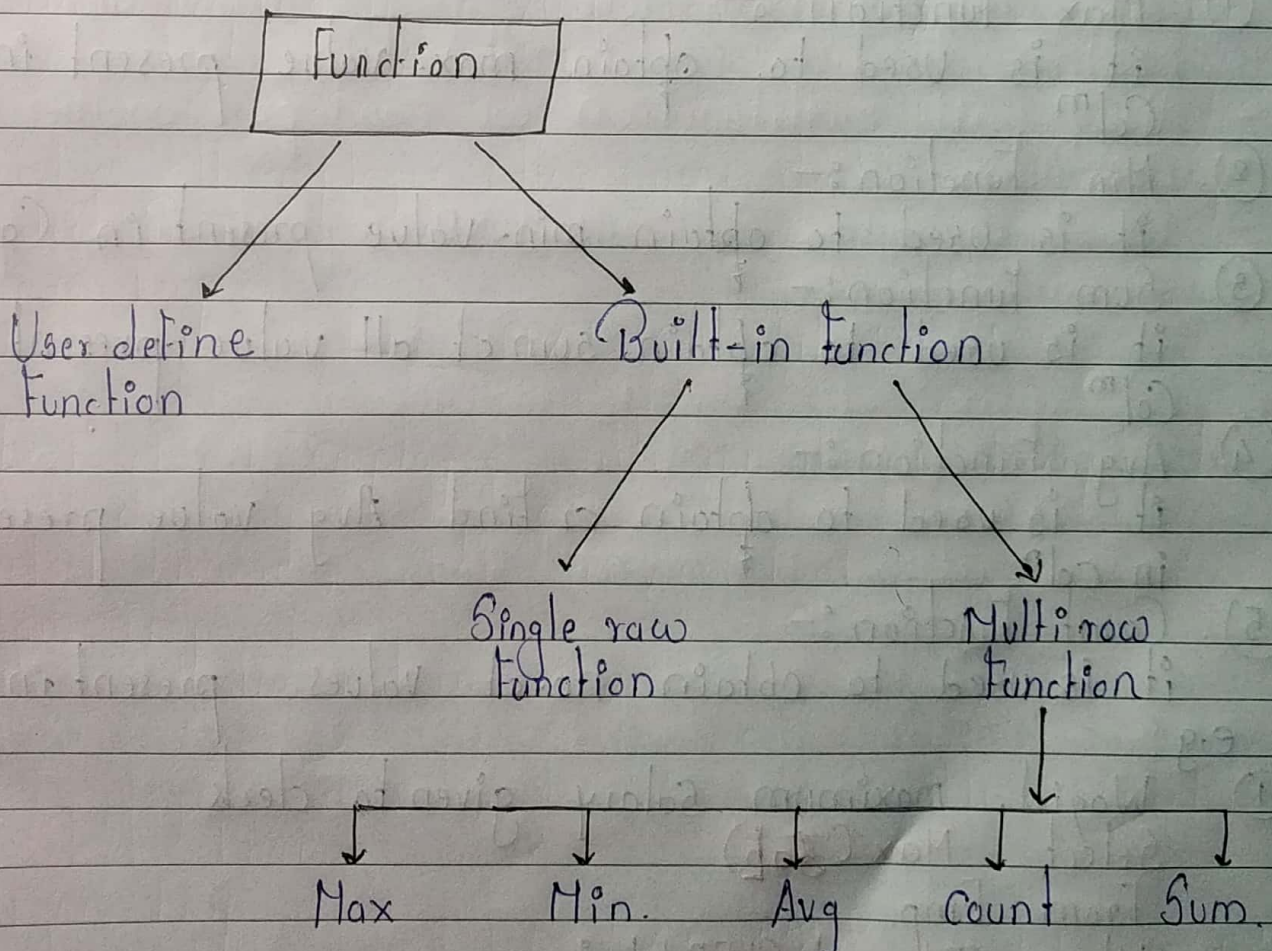 Function
User define
Function
Built-in function
Single raw
function
Multi row
function
Max
Min.
Avg
Count
Sum.